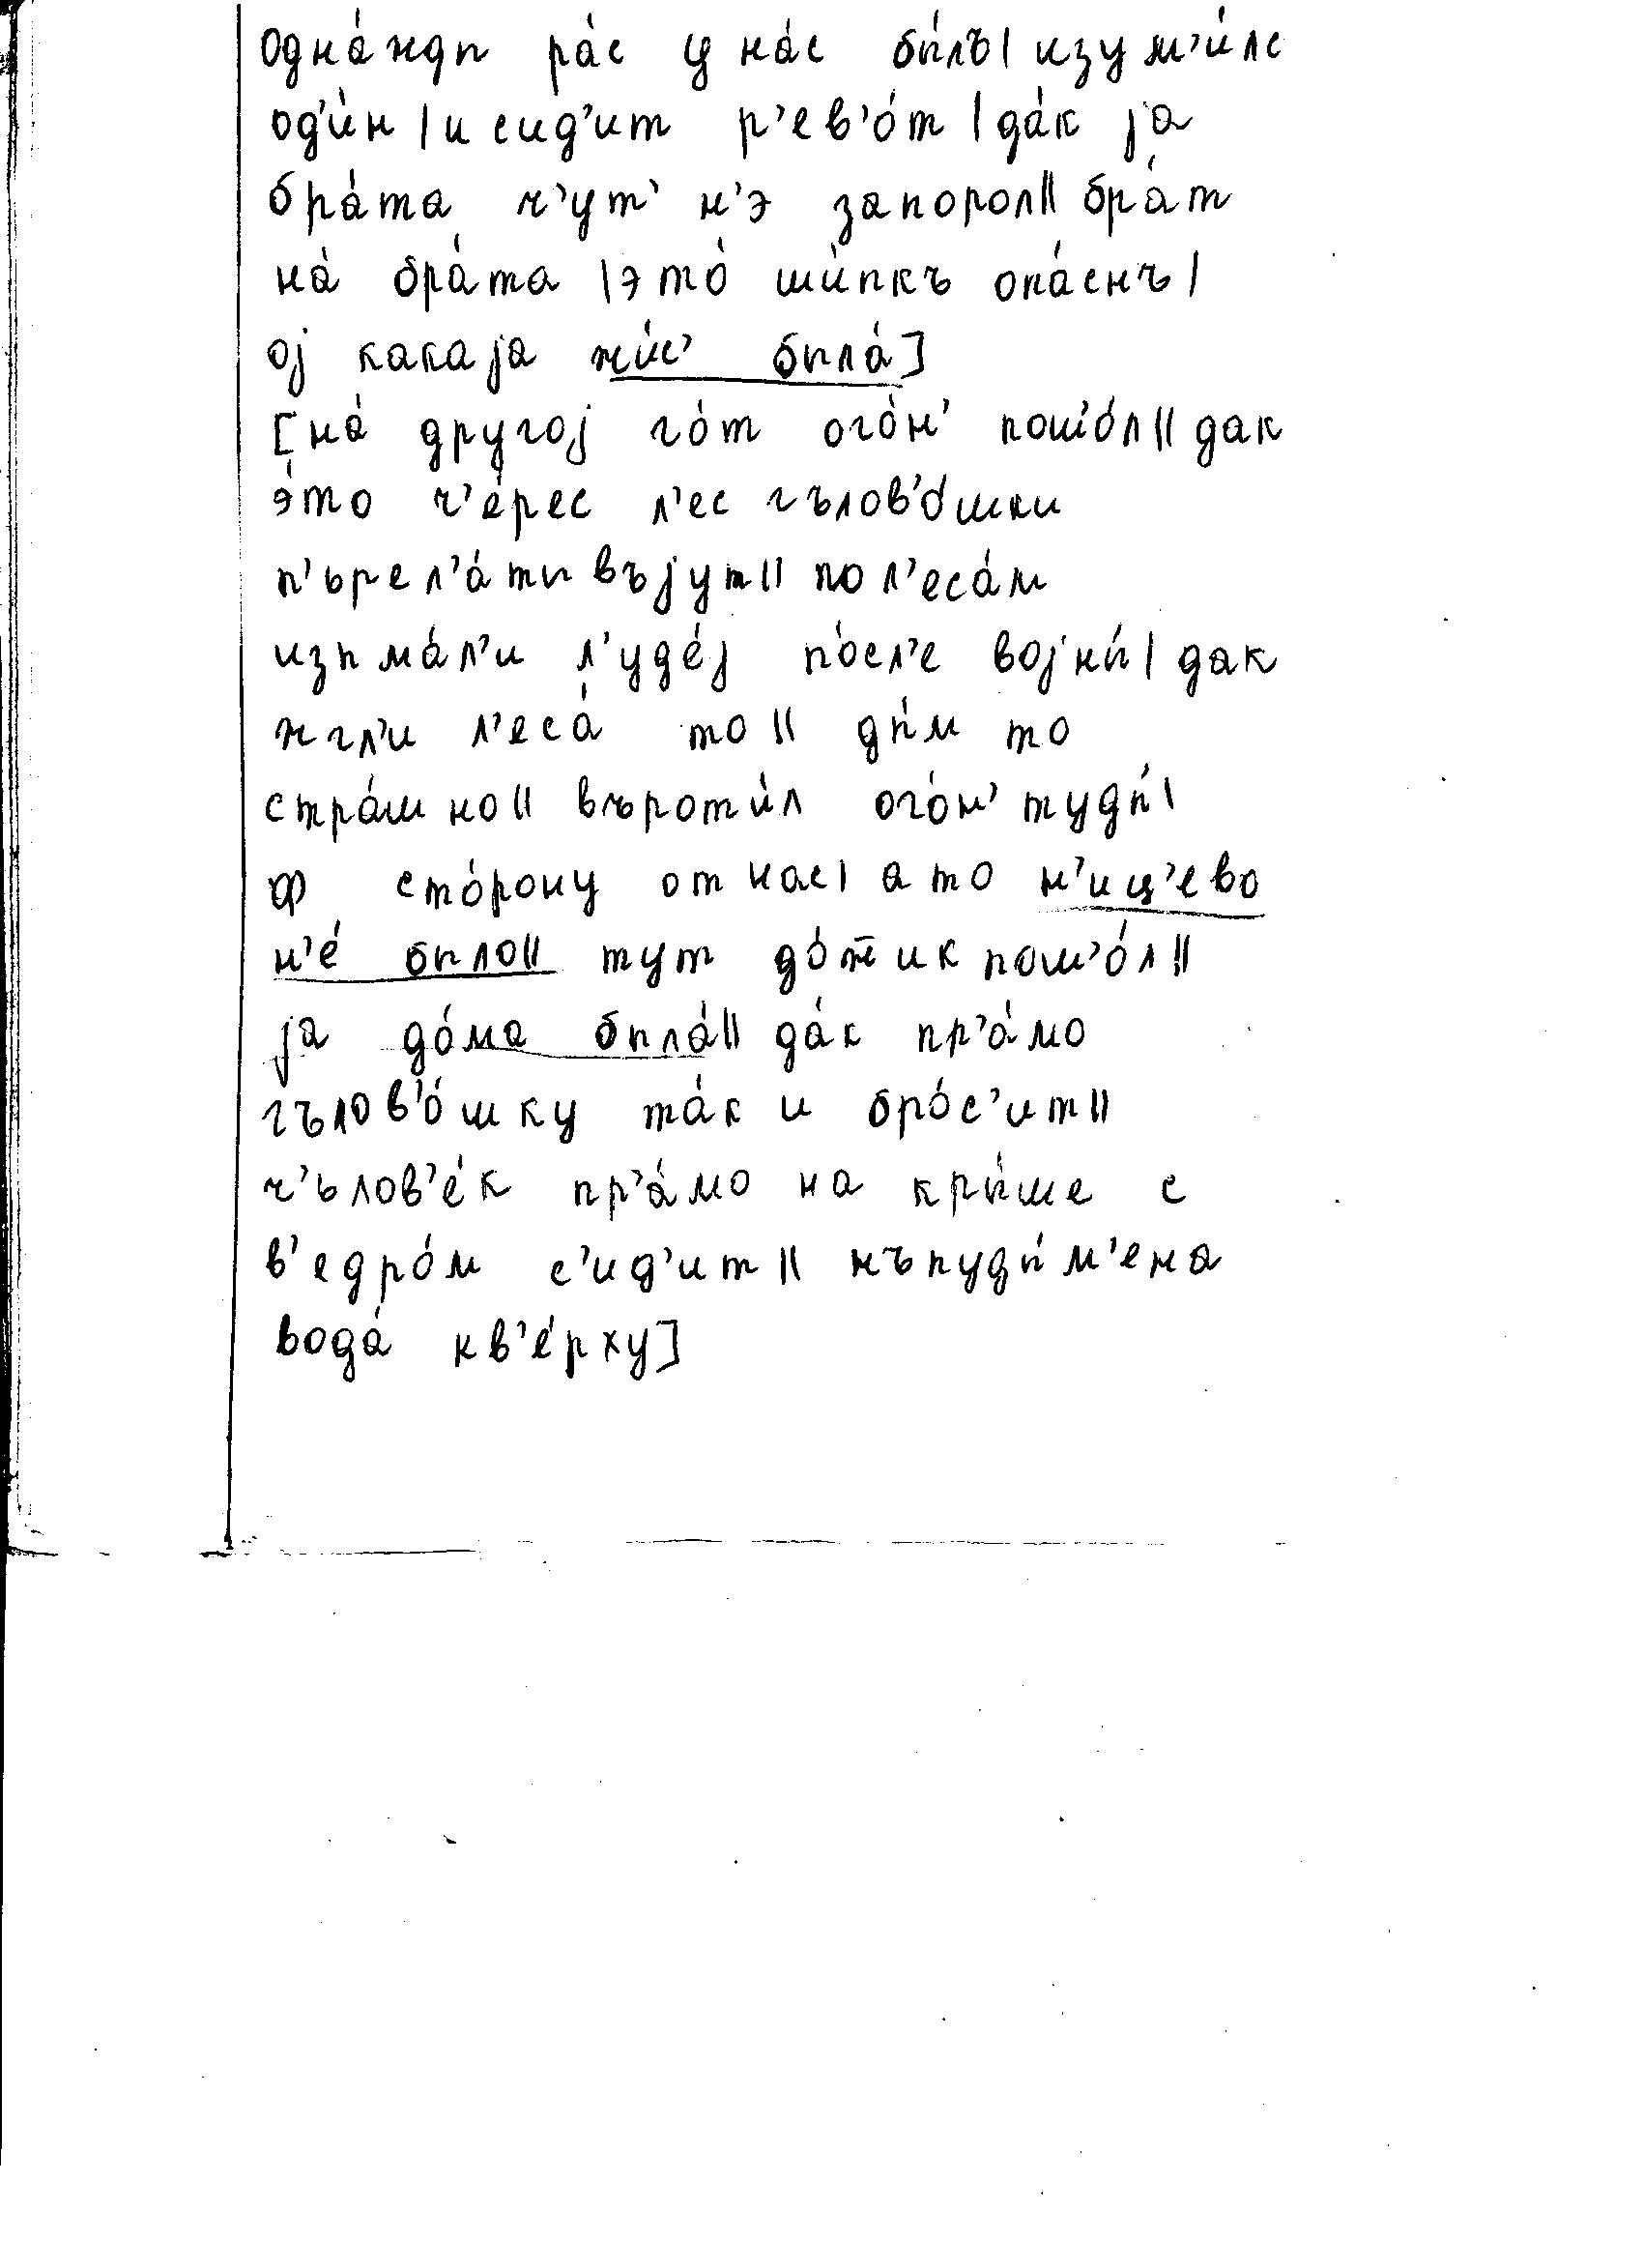 одна́жды ра́с у на́с бы́лъ| изум'и́лс
од'и́н | и сид'ит р'ев'о́т | да́к jа
бра́та ч'ут' н'э запорол|| бра́т
на́ бра́та | это́ ши́пкъ опа́снъ |
оj какаjа жи́с' была́]
[на́ другоj го́т ого́н' пош'о́л || дак
э́то ч'е́рес л'ес гълов'о́шки
п'ърел'а́тывъjут || по л'еса́м
изыма́л'и л'уде́j по́сл'е воjны́ | дак
жгл'и л'еса́ то || ды́м то
стра́шно || въроти́л ого́н' туды́ |
ф сто́рону от нас | а то н'иц'ево
н'е́ было || тут до́жжик пош'о́л ||
jа до́ма была́ || да́к пр'а́мо
гълов'о́шку та́к и бро́с'ит ||
ч'ълов'е́к пр'а́мо на кры́ше с
в'едро́м с'ид'ит || нъпуды́м'ена
вода́ кв'е́рху]